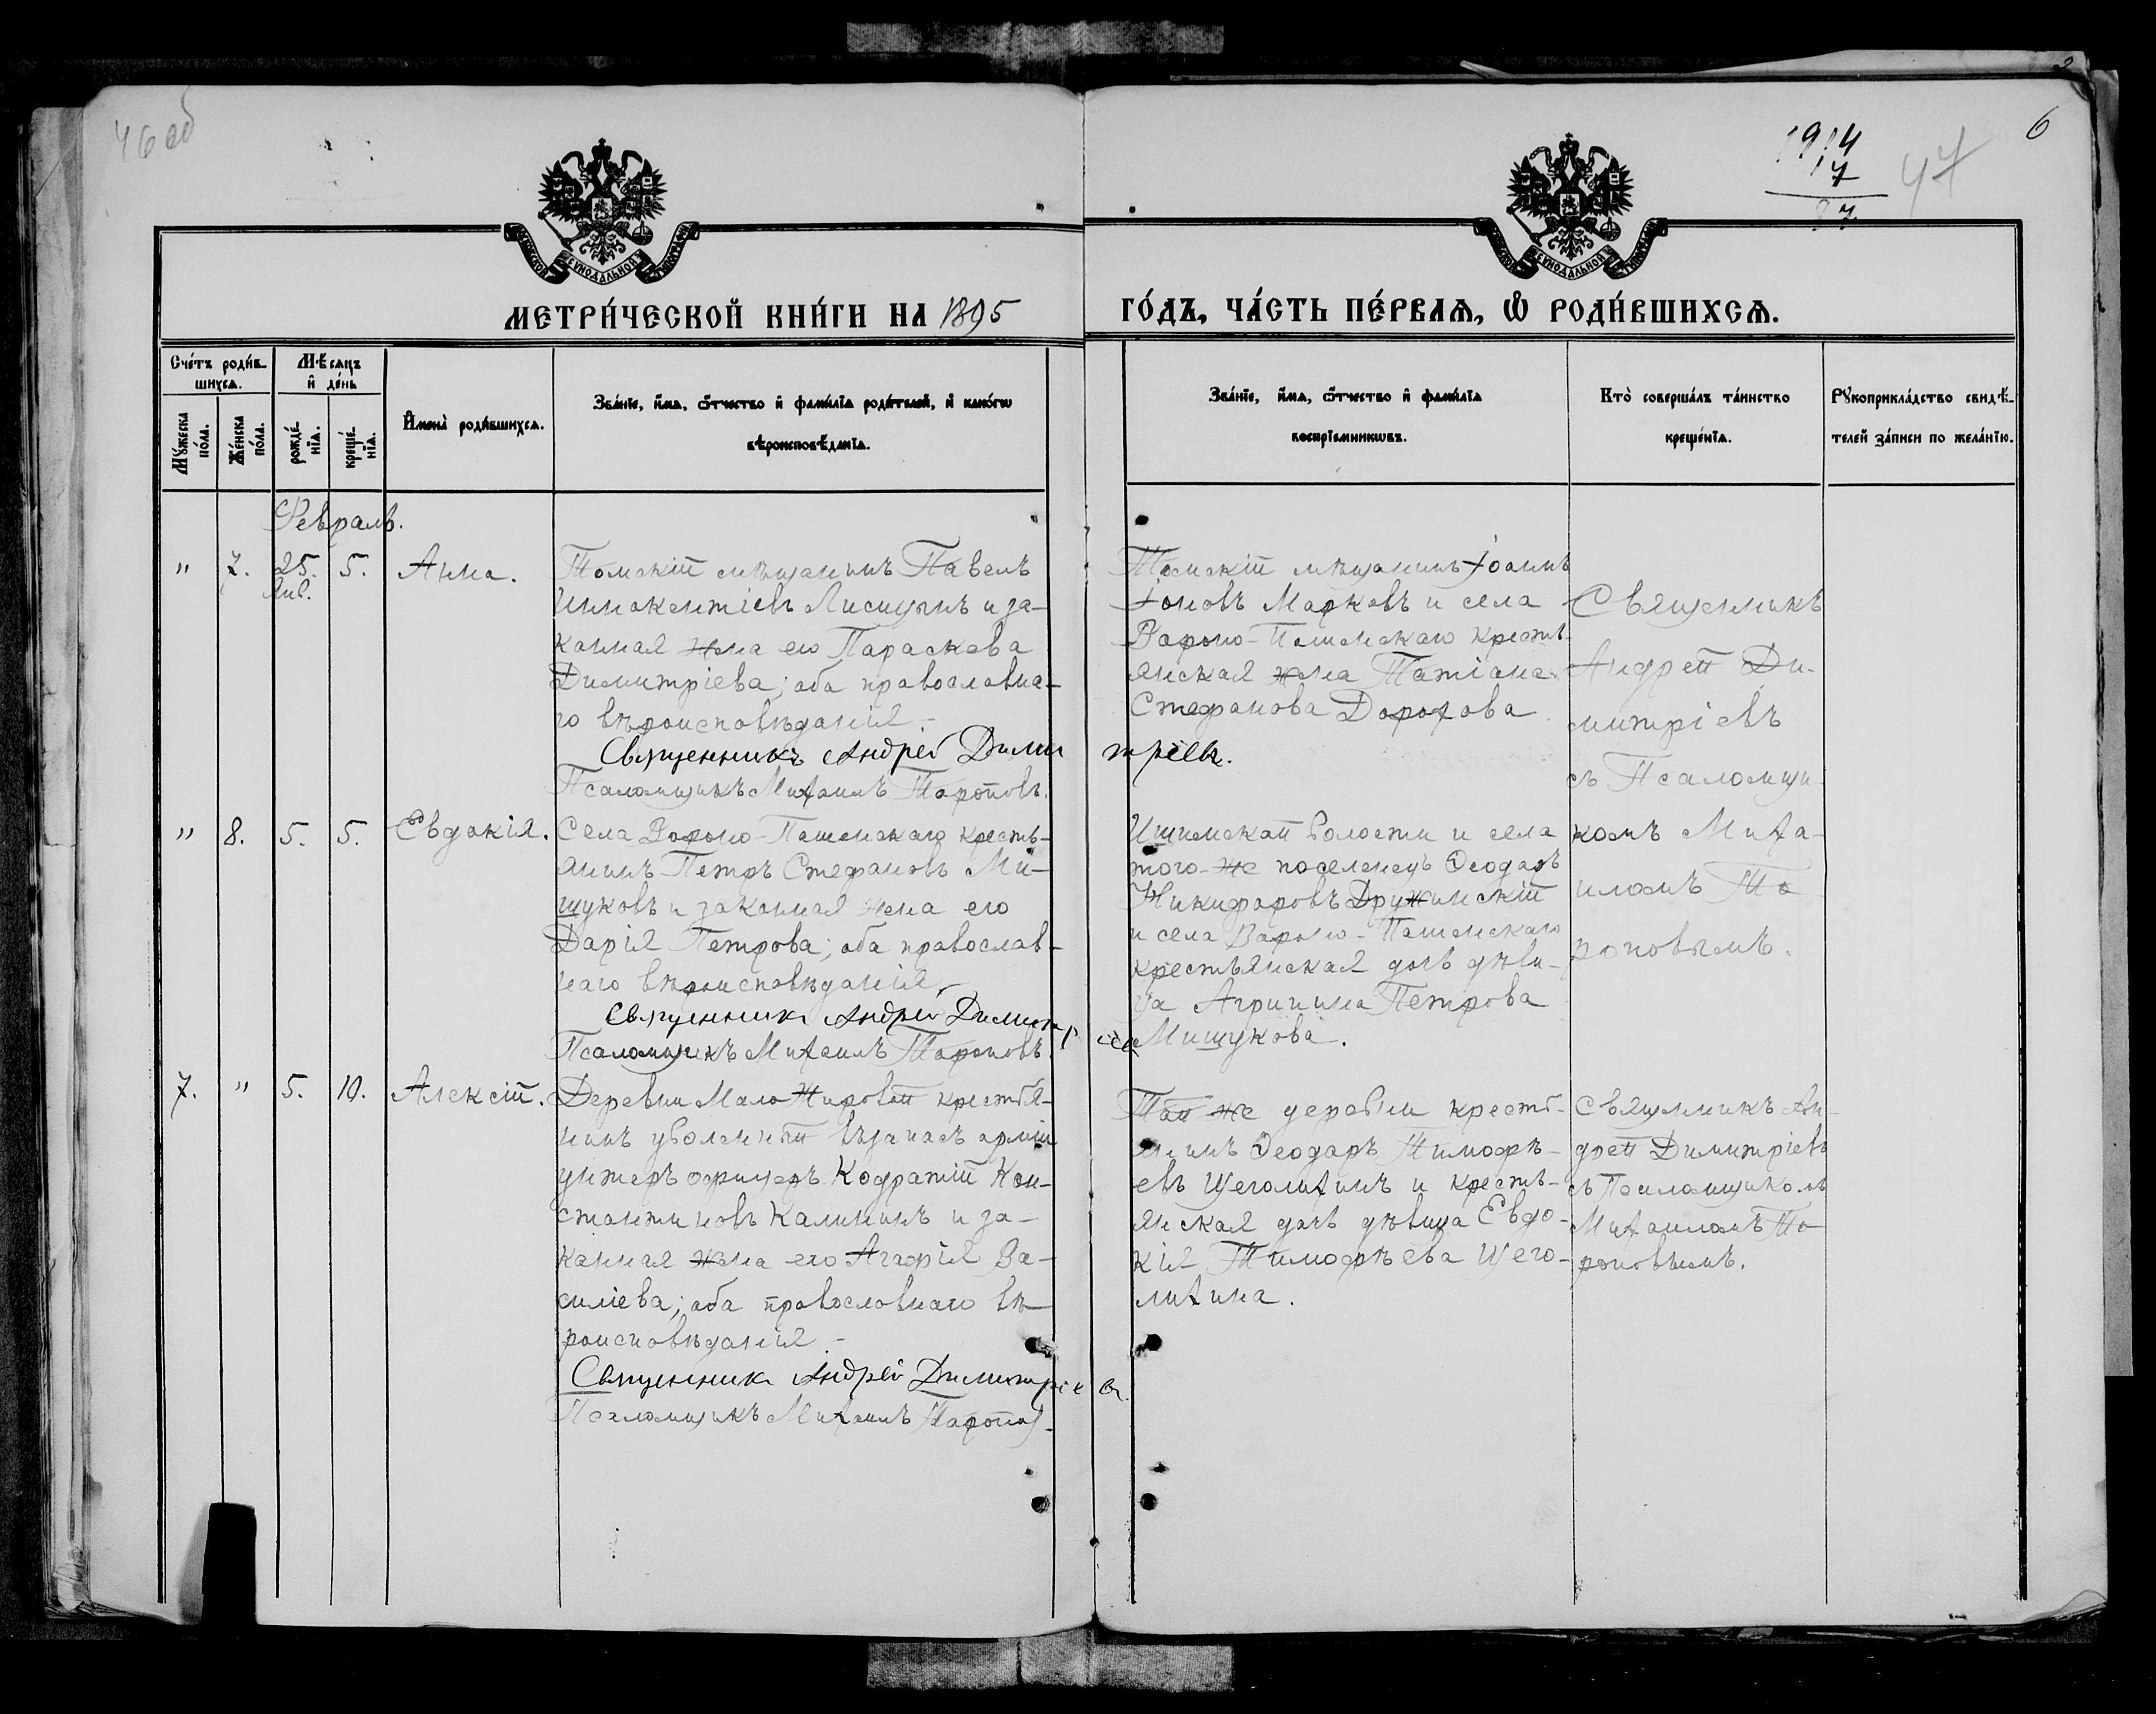 46 об
1914
17
27
47
6
СѴНОДАЛЬНОЙ
СѴНОДАЛЬНОЙ
МЕТРИ́ЧЕСКОЙ КНИ́ГИ НА 1895
ГО́ДЪ, ЧА́СТЬ ПЕ́РВАѦ, Ѽ РОДИ́ВШИХСѦ.
Сче́тъ роди́в-
шихсѧ.
Мѣ́сѧцъ
и҆ де́нь
Мꙋ́жеска
по́ла.
Же́нска
по́ла.
рожде́-
нїѧ.
креще́-
нїѧ.
И҆мена̀ роди́вшихсѧ.
Зва́нїе, и҆́мѧ, ѻ҆́тчество и҆ фами́лїѧ роди́телей, и҆ како́гѡ
вѣроисповѣ́данїѧ.
Зва́нїе, и҆́мѧ, ѻ҆́тчество и҆ фами́лїѧ
воспрїе́мникѡвъ.
Кто̀ соверша́лъ та́инство
креще́нїѧ.
Рꙋкоприкла́дство свидѣ́-
телей за́писи по жела́нїю.
Февраль.
" 7. 25. 5. Анна.
Янв.
Томскій мѣщанинъ Павелъ
Иннокентіевъ Лисицынъ и за-
конная жена его Параскева
Димитріева; оба православна-
го вѣроисповѣданія.
Священникъ Андрей Димитріевъ.
Псаломщикъ Михаилъ Тороповъ.
Томскій мѣщанинъ Іоаннъ
Іоновъ Марковъ и села
Вороно-Пашенскаго кресть-
янская жена Татіана
Стефанова Дорохова.
Священникъ
Андрей Ди-
митріевъ
съ Псаломщи-
комъ Миха-
иломъ То-
роповымъ.
" 8. 5. 5. Евдокія.
Села Вороно-Пашенскаго кресть-
янинъ Петръ Стефановъ Ми-
щуковъ и законная жена его
Дарія Петрова; оба православ-
наго вѣроисповѣданія.
Священникъ Андрей Димитріевъ
Псаломщикъ Михаилъ Тороповъ.
Ишимской волости и села
того-же поселенецъ Ѳеодоръ
Никифоровъ Дружинскій
и села Вороно-Пашенскаго
крестьянская дочь дѣви-
ца Агрипина Петрова
Мищукова.
7. " 5. 10. Алексій.
Деревни Мало Жировой крестья-
нинъ уволенный въ запасъ арміи
унтеръ офицеръ Кодратій Кон-
стантиновъ Калининъ и за-
конная жена его Агафія Ва-
силіева; оба православнаго вѣ-
роисповѣданія.
Священникъ Андрей Димитріевъ.
Псаломщикъ Михаилъ Торопов
Той же деревни кресть-
янинъ Ѳеодоръ Тимофѣ-
евъ Щеголихинъ и кресть-
янская дочь дѣвица Евдо-
кія Тимофѣева Щего-
лихина.
Священникъ Ан-
дрей Димитріевъ
съ Псаломщикомъ
Михаиломъ То-
роповымъ.